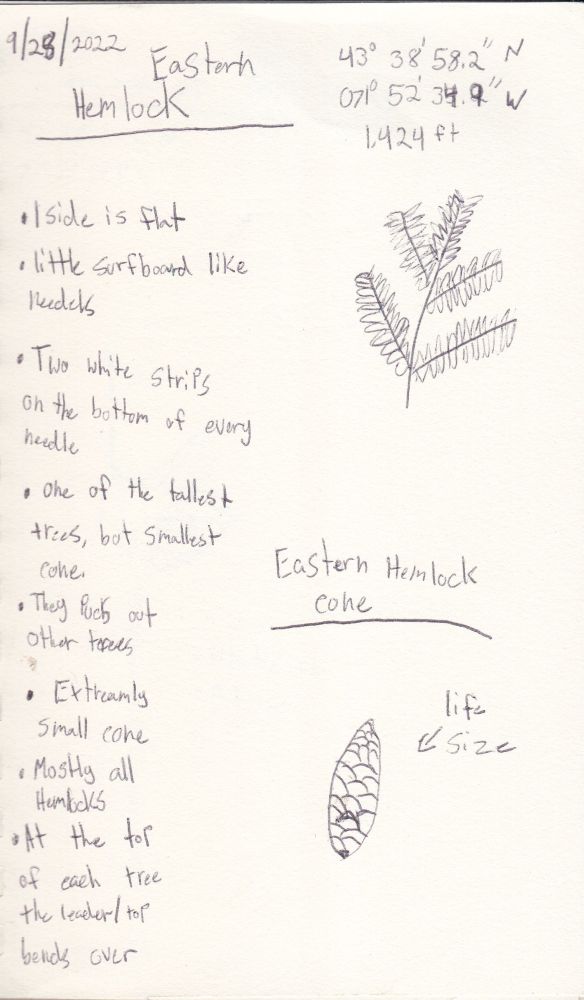 9/28/2022
Eastern
Hemlock
43° 38' 58.2" N
071° 52' 34.9" W
1,424 ft
• 1 side is flat
• little surfboard like
needels
• Two white strips
on the bottom of every
needle
• one of the tallest
trees, but smallest
cone.
• They out
other trees
• Extreamly
small cone
• Mostly all
Hemlocks
• At the top
of each tree
the leader/top
bends over
Eastern Hemlock
cone
life
size